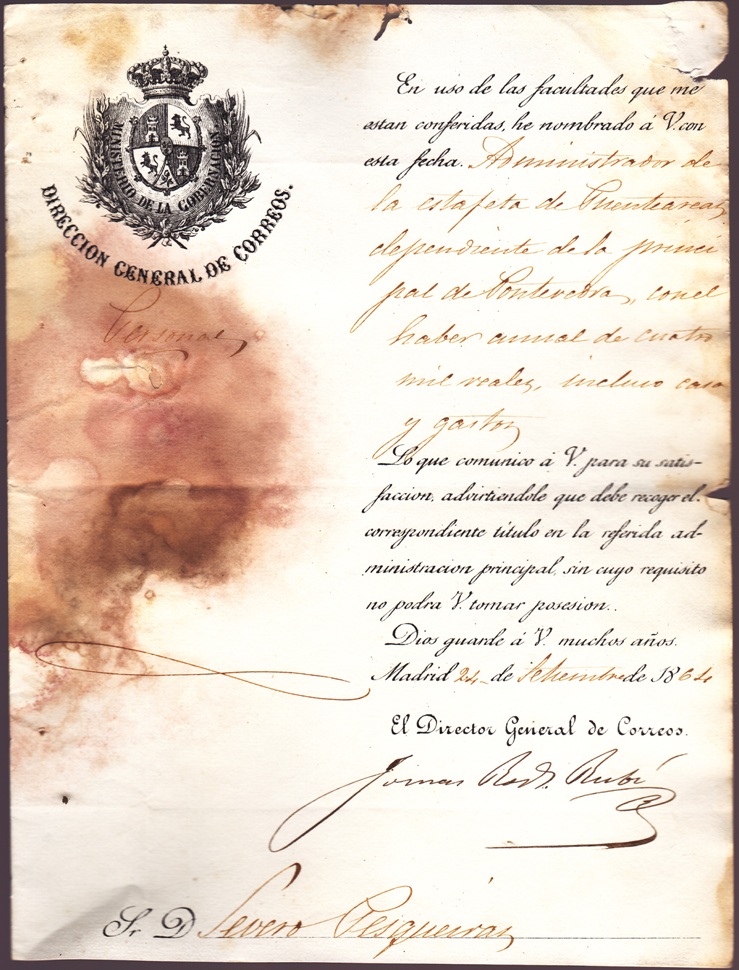 MINISTERIO DE LA GOBERNACION
DIRECCION GENERAL DE CORREOS.
Personal
En uso de las facultades que me
estan conferidas, he nombrado á V. con
esta fecha. Administrador de
la estafeta de Puenteareas
dependiente de la princi
pal de Pontevedra, con el
haber anual de cuatro
mil reales, incluso casa
y gastos
Lo que comunico á V. para su satis-
faccion, advirtiendole que debe recoger el
correspondiente titulo en la referida ad-
ministracion principal, sin cuyo requisito
no podra V. tomar posesion..
Dios guarde á V. muchos años.
Madrid 24 de Setiembre de 1864
El Director General de Correos.
Tomas Rodz. Rubí
Sr. D Severo Pesqueiras